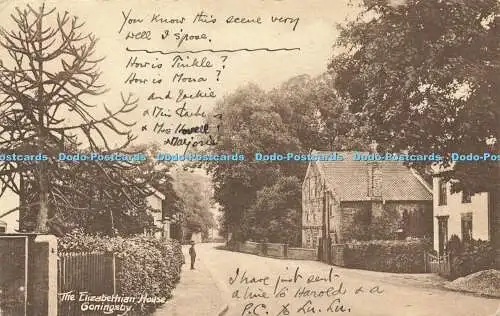 You know this scene very
well I spose.
How is Tinkle?
How is Mona?
and Jackie
& Miss
& Miss Howell!
Marjorie
Postcards Dodo-Postcards Dodo-Postcards Dodo-Postcards Dodo-Postcards
I have just sent
a line to Harold & a
P.C. to Lu. Lu.
The Elizabethian House
Coningsby.